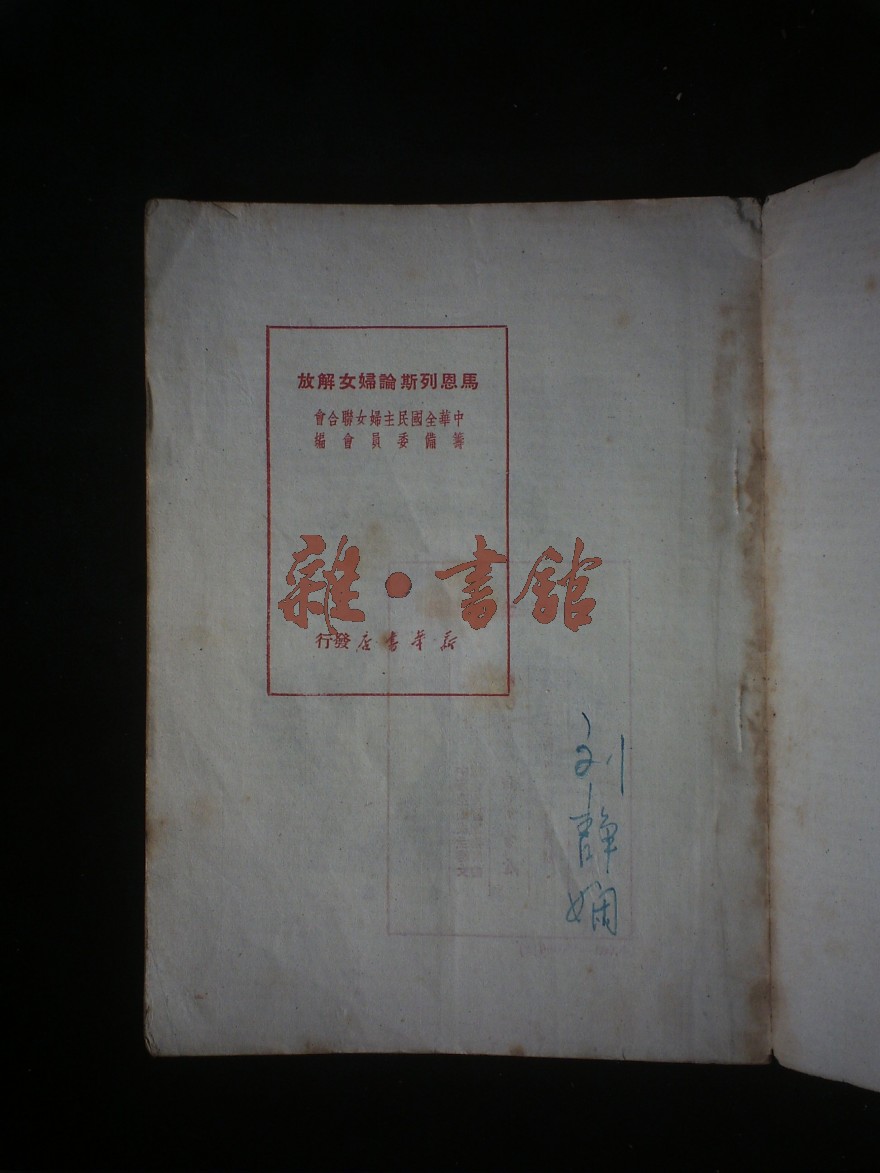 馬恩列斯論婦女解放
中華全國民主婦女聯合會
籌備委員會編
雜·書館
新華書店發行
刘静娴